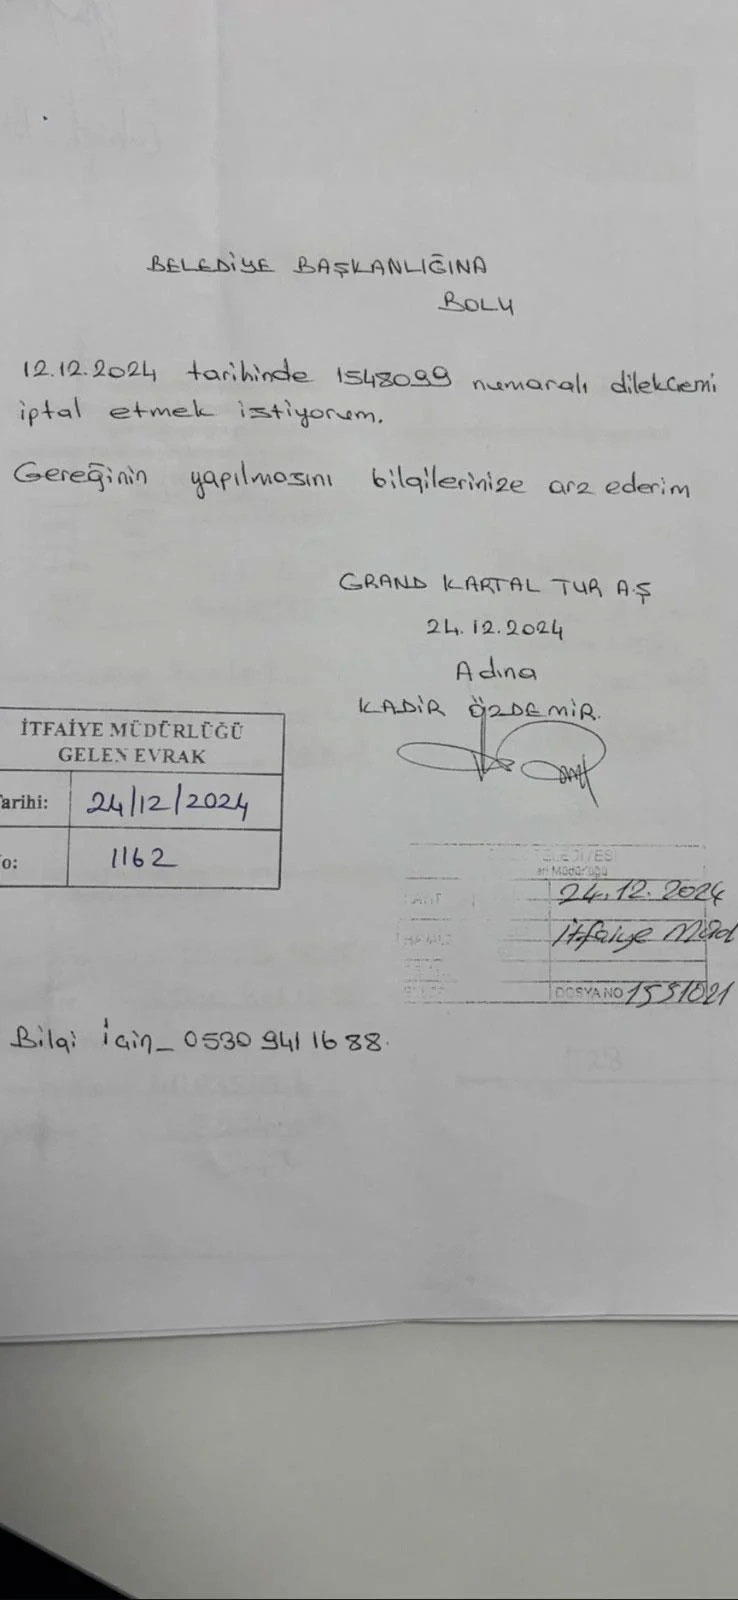 BELEDİYE BAŞKANLIĞINA
BOLU
12.12.2024 tarihinde 1548099 numaralı dilekçemi
iptal etmek istiyorum.
Gereğinin yapılmasını bilgilerinize arz ederim
GRAND KARTAL TUR A.Ş
24.12.2024
Adına
KADİR ÖZDEMİR.
İTFAİYE MÜDÜRLÜĞÜ
GELEN EVRAK
arihi: 24/12/2024
o: 1162
BELEDİYESİ
Müdürlüğü
24.12.2024
İtfaiye Müd
DOSYA NO 1551021
Bilgi İçin_ 0530 941 16 88.